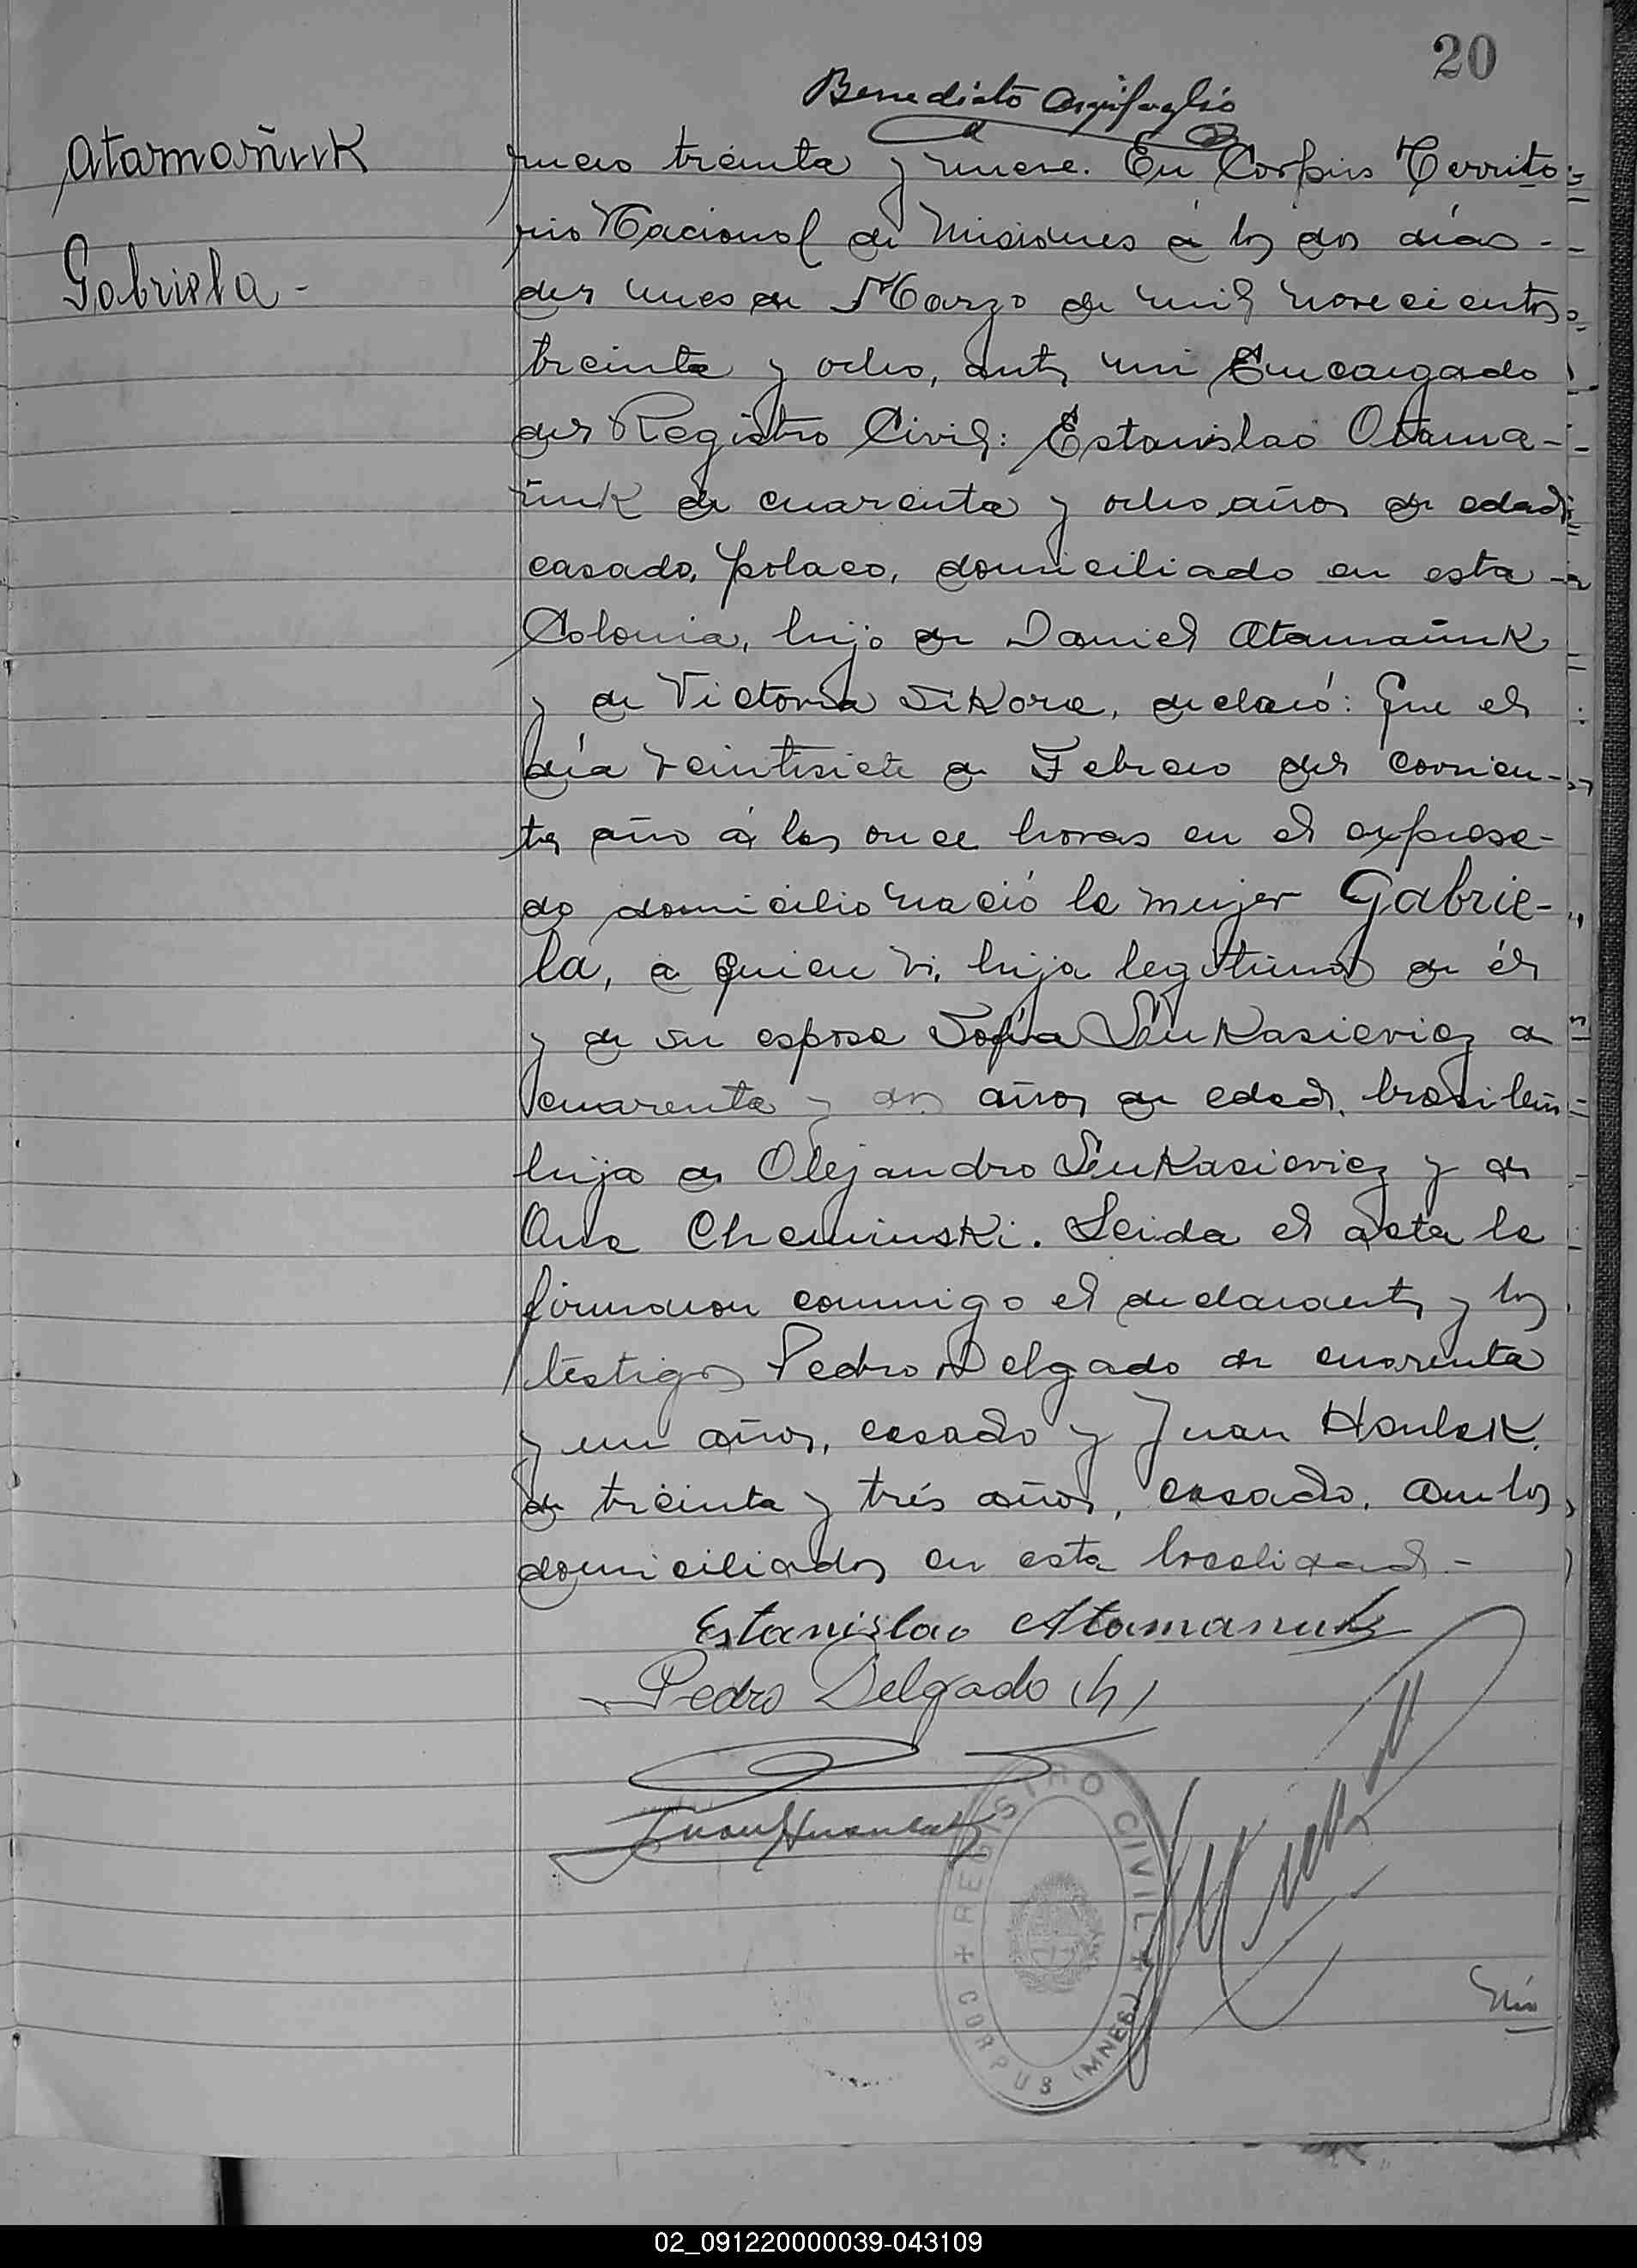 20
Benedicto
Atamañuk
Gabriela -
mero treinta y nueve. En Corpus Territo-
rio Nacional de Misiones á los dos días -
del mes de Marzo de mil novecientos
treinta y ocho, ante mi Encargado
del Registro Civil: Estanislao Atama-
ñuk de cuarenta y ocho años de edad
casado, polaco, domiciliado en esta
Colonia, hijo de Daniel Atamañuk
y de Victoria Sikora, declaró: Que el
día veintisiete de Febrero del corrien-
te año á las once horas en el expresa-
do domicilio nació la mujer Gabrie-
la, a quien vi, hija legitima de él
y de su esposa Sofía Liukasievicz de
cuarenta y dos años de edad, brasileña
hija de Alejandro Liukasievicz y de
Ana Cheminski. Leida el acta la
firmaron conmigo el declarante y los
testigos Pedro Delgado de cuarenta
y un años, casado y Juan Hanlak
de treinta y trés años, casado, ambos
domiciliados en esta localidad -
Estanislao Atamanuk
Pedro Delgado (h)
Juan
REGISTRO CIVIL
CORPUS (MNES)
02_091220000039-043109